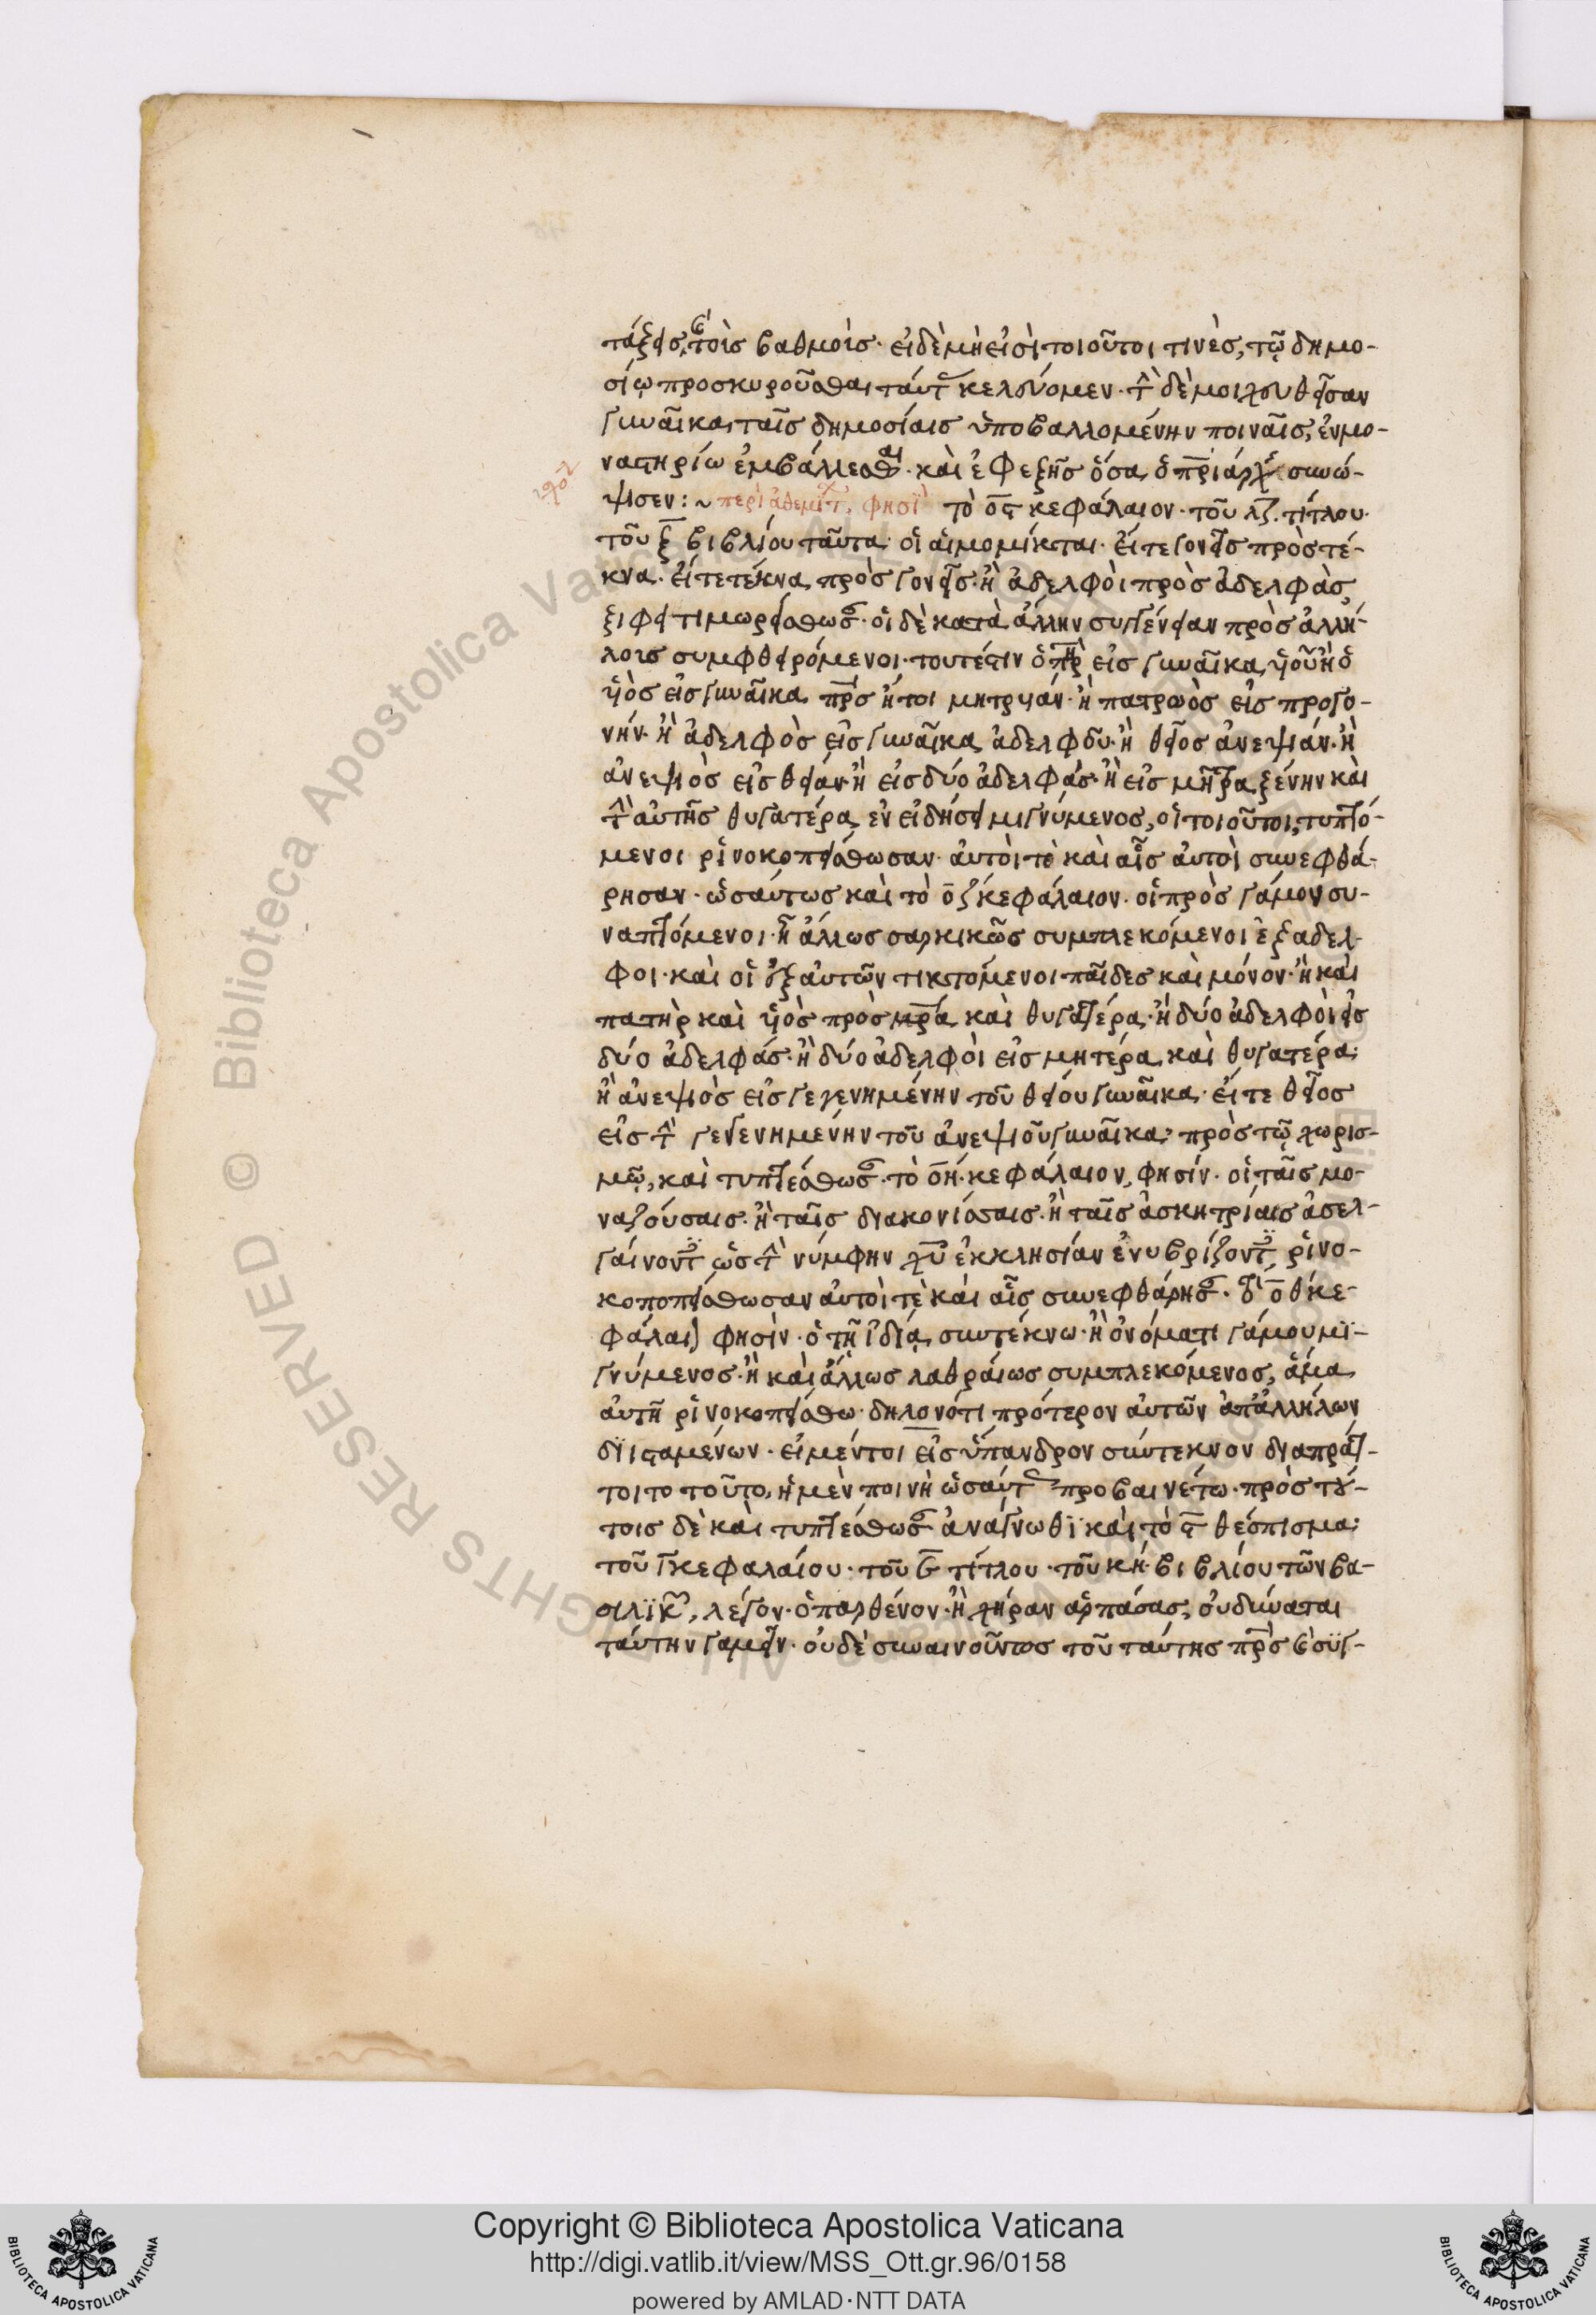 τάξεις, καὶ τοῖς βαθμοῖς· εἰ δὲ μὴ εἰσὶ τοιοῦτοι τινὲς, τῷ δημο-
σίῳ προσκυροῦσθαι ταῦτ κελεύομεν· τὴν δὲ μοιχευθεῖσαν
γυναῖκα, ταῖς δημοσίαις ὑποβαλλομένην ποιναῖς, ἐν μο-
ναστηρίω ἐμβάλλεσθαι· καὶ ἐφεξῆς ὅσα ὁ πριάρχ συνώ-
ψισεν: ~ περὶ ἀθεμίτ, φησὶ τὸ ος κεφάλαιον· τοῦ λζ. τίτλου·
τοῦ ξ βιβλίου ταῦτα· οἱ αἱμομίκται· εἴτε γονεῖς πρὸς τέ-
κνα· εἴτε τέκνα πρὸς γονεῖς· ἢ ἀδελφὸι πρὸς ἀδελφὰς,
ξίφει τιμωρείσθωσ· οἱ δὲ κατὰ ἄλλην συγγένειαν πρὸς ἀλλή-
λοις συμφθειρόμενοι· τουτέστιν ὁ πηρ εἰς γυναῖκα ὑοῦ ἢ ὁ
ὑὸς εἰς γυναῖκα πρς ἤτοι μητρυάν· ἢ πατρωὸς εἰς προγο-
νήν· ἢ ἀδελφὸς εἰς γυναῖκα ἀδελφοῦ· ἢ θεῖος ἀνεψιάν· ἢ
ἀνεψιὸς εἰς θείαν· ἢ εἰς δύο ἀδελφάς· ἢ εἰς μητέρα ξένην καὶ
τὴν αὐτῆς θυγατέρα ἐν εἰδήσει μιγνύμενος, οἱ τοιοῦτοι, τυπτό-
μενοι ῥινοκοπείσθωσαν· αὐτοὶ τὲ καὶ αἷς αὐτοὶ συνεφθά-
ρησαν· ὡσαύτως καὶ τὸ οζ κεφάλαιον· οἱ πρὸς γάμον συ-
ναπτόμενοι· ἢ ἄλλως σαρκικῶς συμπλεκόμενοι ἐξάδελ-
φοι· καὶ οἱ ἐξ αὐτῶν τικτόμενοι παῖδες καὶ μόνον· ἢ καὶ
πατὴρ καὶ ὑὸς πρὸς μρα καὶ θυγατέρα· ἢ δύο ἀδελφὸι εἰς
δύο ἀδελφάς· ἢ δύο ἀδελφὸι εἰς μητέρα καὶ θυγατέρα·
ἢ ἀνεψιὸς εἰς γεγενημένην τοῦ θείου γυναῖκα· εἴτε θεῖος
εἰς τὴν γεγενημένην τοῦ ἀνεψιοῦ γυναῖκα· πρὸς τῷ χωρισ-
μῷ, καὶ τυπτέσθωσ· τὸ οη· κεφάλαιον, φησίν· οἱ ταῖς μο-
ναζούσαις· ἢ ταῖς διακονίσσαις· ἢ ταῖς ἀσκητρίαις ἀσελ-
γαίνοντες ὡς τὴν νύμφην χυ ἐκκλησίαν ἐνυβρίζοντες, ῥινο-
κοποπείσθωσαν αὐτοὶ τὲ καὶ αἷς συνεφθάρησ· τὸ οθ κε-
φάλαι) φησὶν· ὁ τῇ ἰδίᾳ συντέκνω· ἢ ὀνόματι γάμου μϊ-
γνύμενος· ἢ καὶ ἄλλως λαθραίως συμπλεκόμενος, ἅμα
αὐτῇ ῥινοκοπείσθω· δηλονότι πρότερον αὐτῶν ἀπ' ἀλλήλων
δϊϊσταμένων· εἰ μέντοι εἰς ὕπανδρον σύντεκνον διαπράτ-
τοιτο τοῦτο, ἡ μὲν ποινὴ ὡσαύτ προβαινέτω· πρὸς τού-
τοις δὲ καὶ τυπτέσθωσ ἀνάγνωθϊ καὶ τὸ ς θέσπισμα·
τοῦ γ κεφαλαίου· τοῦ β τίτλου· τοῦ κη βιβλίου τῶν βα-
σιλϊκ, λέγον· ὁ παρθένον· ἢ χήραν ἁρπάσας, οὐ δύναται
ταύτην γαμεῖν· οὐδὲ συναινοῦντος τοῦ ταύτης πρς καὶ σϋγ-